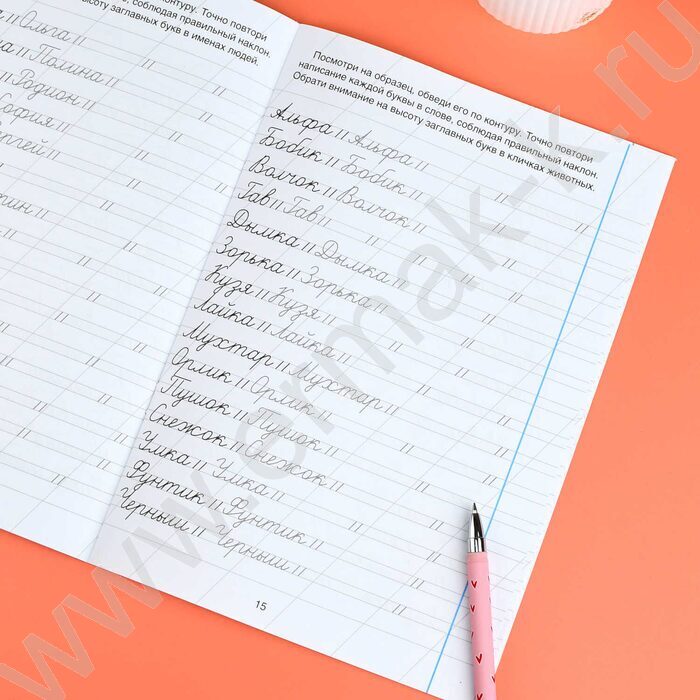 контуру. Точно повтори
соблюдая правильный наклон.
высоту заглавных букв в именах людей.
Ольга
Полина
Родион
София
Посмотри на образец, обведи его по контуру. Точно повтори
написание каждой буквы в слове, соблюдая правильный наклон.
Обрати внимание на высоту заглавных букв в кличках животных.
Альфа Альфа
Бобик Бобик
Волчок Волчок
Гав Гав
Дымка Дымка
Зорька Зорька
Кузя Кузя
Лайка Лайка
Мухтар Мухтар
Орлик Орлик
Пушок Пушок
Снежок Снежок
Умка Умка
Фунтик Фунтик
Черныш Черныш
15
www.ermak-k.ru